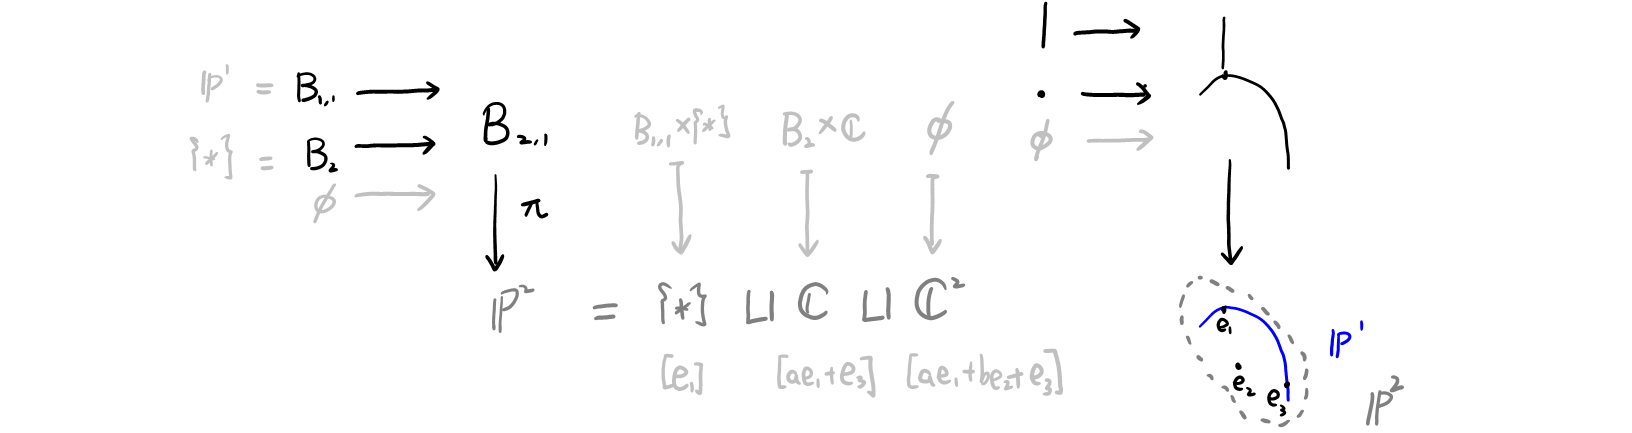 ℙ¹ = B₁,₁ ⟶
{*} = B₂ ⟶
∅ ⟶
B₂,₁
↓ π
B₁,₁×{*} B₂×ℂ ∅
ℙ² = {*} ⊔ ℂ ⊔ ℂ²
[e₁] [ae₁+e₃] [ae₁+be₂+e₃]
| ⟶
· ⟶
∅ ⟶
e₁
e₂
e₃
ℙ¹
ℙ²